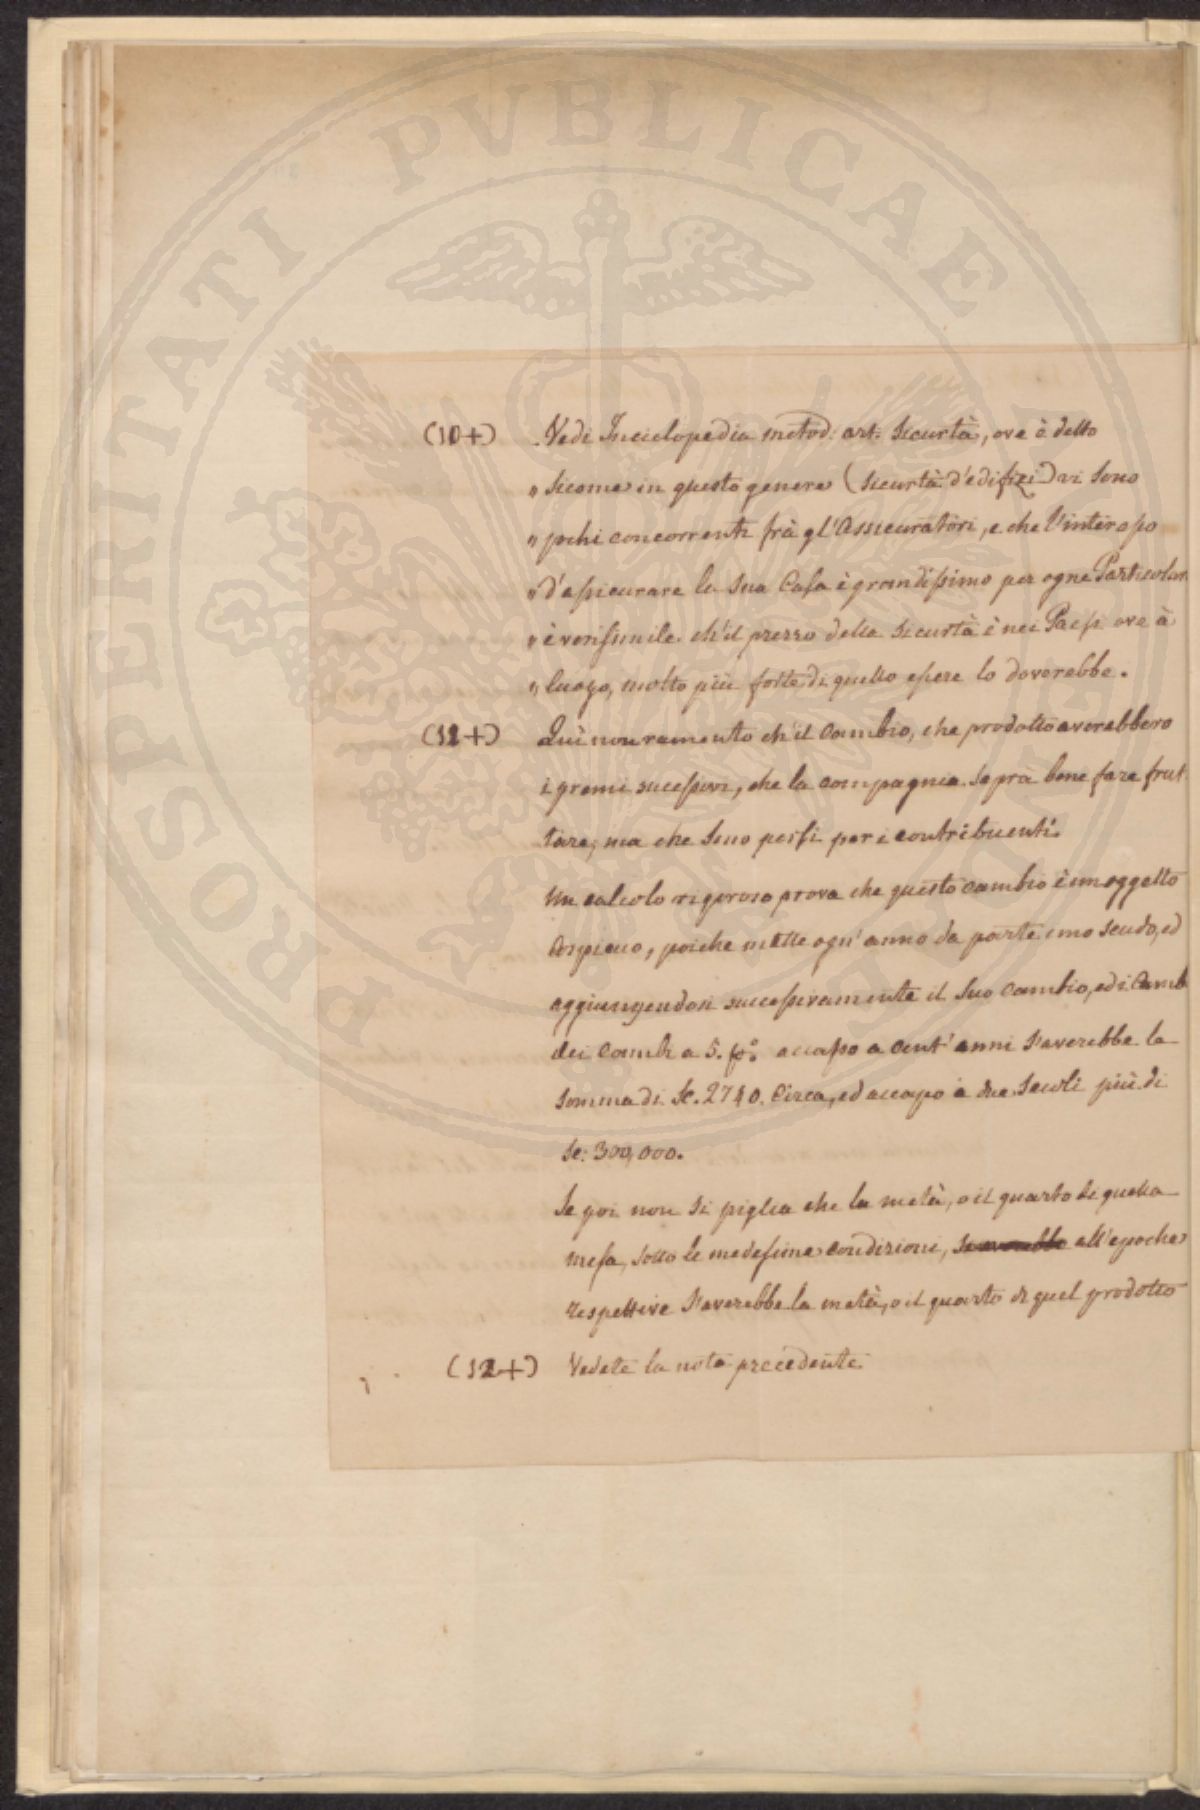 PROSPERITATI PVBLICAE
(10+) Vedi Inciclopedia metod: art: Sicurtà, ove è detto
„ Sicome in questo genere (Sicurtà d'edifizi) vi sono
„ pochi concorrenti frà gl'Assicuratori, e che l'interesso
„ d'assicurare la sua Casa è grandissimo per ogne Particolar
„ è verisimile ch'il prezzo delle Sicurtà è nei Paesi ove à
„ luogo, molto più forte di quello essere lo doverebbe.
(11+) Qui non ramento ch'il Cambio, che prodotto averebbero
i premi sucessivi, che la compagnia saprà bene fare frut
tare, ma che sono persi per i contribuenti.
Un calcolo rigoroso prova che questo cambio è un oggetto
cospicuo, poiche mette ogn'anno da parte uno scudo, ed
aggiungendosi successivamente il suo Cambio, ed i Camb
dei Cambi a 5. p% accapo a cent'anni s'averebbe la
somma di Sc. 2740. Circa, ed accapo à due Secoli più di
Sc: 300,000.
Se poi non si piglia che la metà, o il quarto di quella
messa, sotto le medesime condizioni, all'epoche
respettive s'averebbe la metà, o il quarto di quel prodotto
(12+) Vedete la nota precedente.